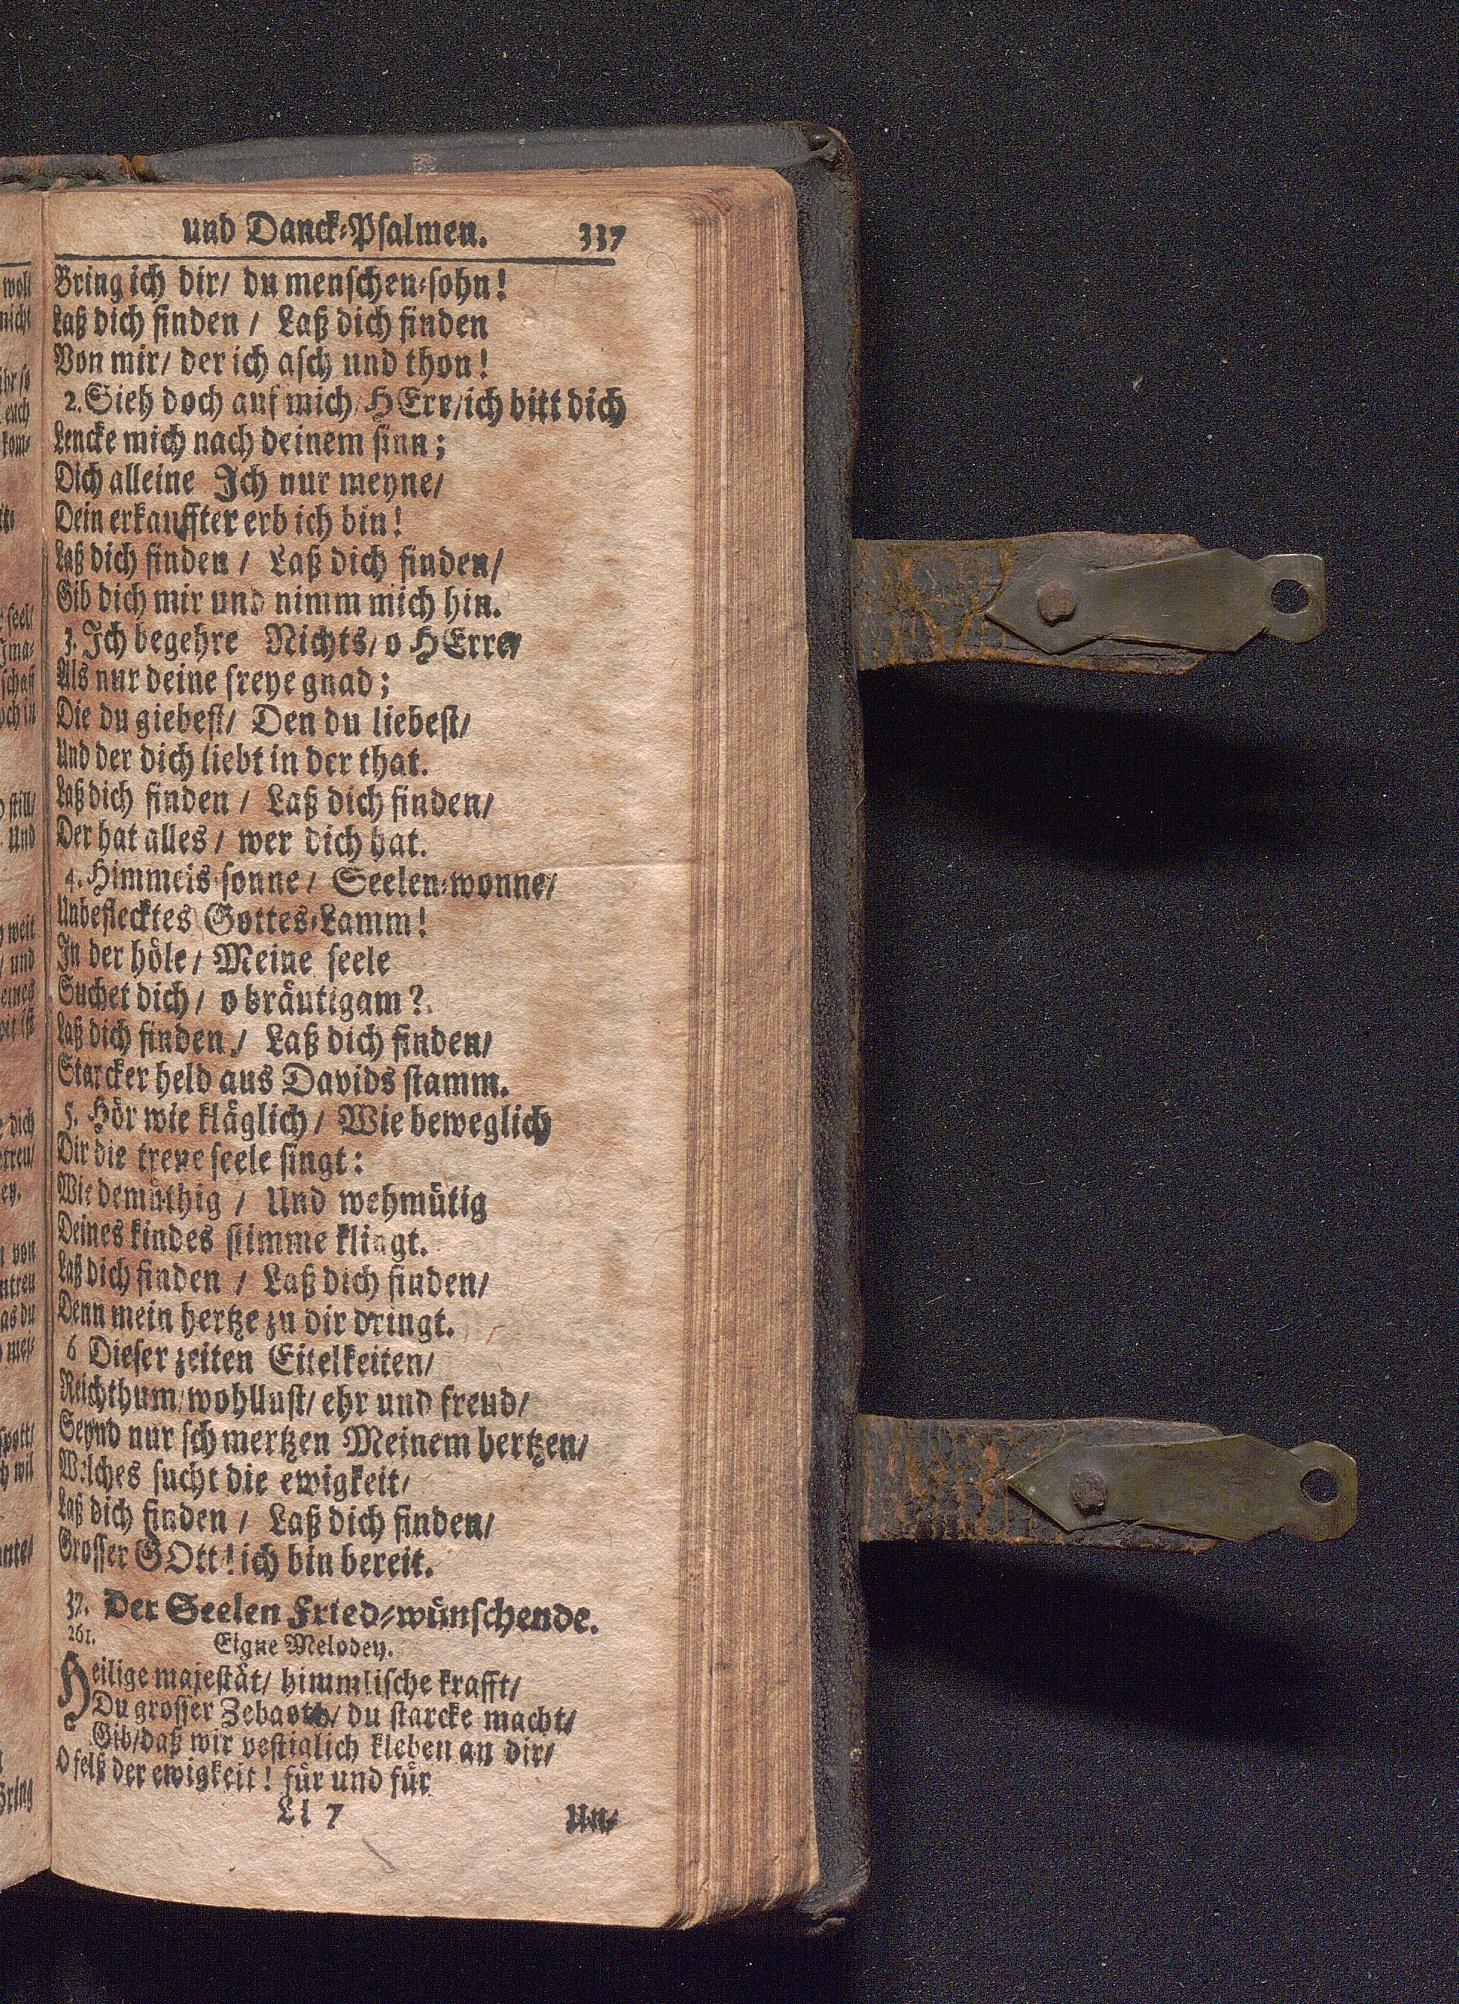 und Danck-Psalmen. 337
Bring ich dir/ du menschen-sohn!
Laß dich finden / Laß dich finden
Von mir/ der ich asch und thon!
2. Sieh doch auf mich HErr/ich bitt dich
Lencke mich nach deinem sinn;
Dich alleine Ich nur meyne/
Dein erkauffter erb ich bin!
Laß dich finden / Laß dich finden/
Gib dich mir und nimm mich hin.
3. Ich begehre Nichts/ o HErre/
Als nur deine freye gnad;
Die du giebest/ Den du liebest/
Und der dich liebt in der that.
Laß dich finden / Laß dich finden/
Der hat alles / wer dich hat.
4. Himmels-sonne / Seelen-wonne/
Unbeflecktes Gottes-Lamm!
In der höle / Meine seele
Suchet dich / o bräutigam?
Laß dich finden / Laß dich finden/
Starcker held aus Davids stamm.
5. Hör wie kläglich / Wie beweglich
Dir die treue seele singt:
Wie demüthig / Und wehmütig
Deines kindes stimme klingt.
Laß dich finden / Laß dich finden/
Denn mein hertze zu dir dringt.
6 Dieser zeiten Eitelkeiten/
Reichthum/wohllust/ ehr und freud/
Seynd nur schmertzen Meinem hertzen/
Welches sucht die ewigkeit/
Laß dich finden / Laß dich finden/
Grosser GOtt! ich bin bereit.
37. Der Seelen Fried-wünschende.
261. Eigne Melodey.
Heilige majestät/ himmlische krafft/
Du grosser Zebaoth/ du starcke macht/
Gib/daß wir vestiglich kleben an dir/
O felß der ewigkeit! für und für
Ll 7 Un-